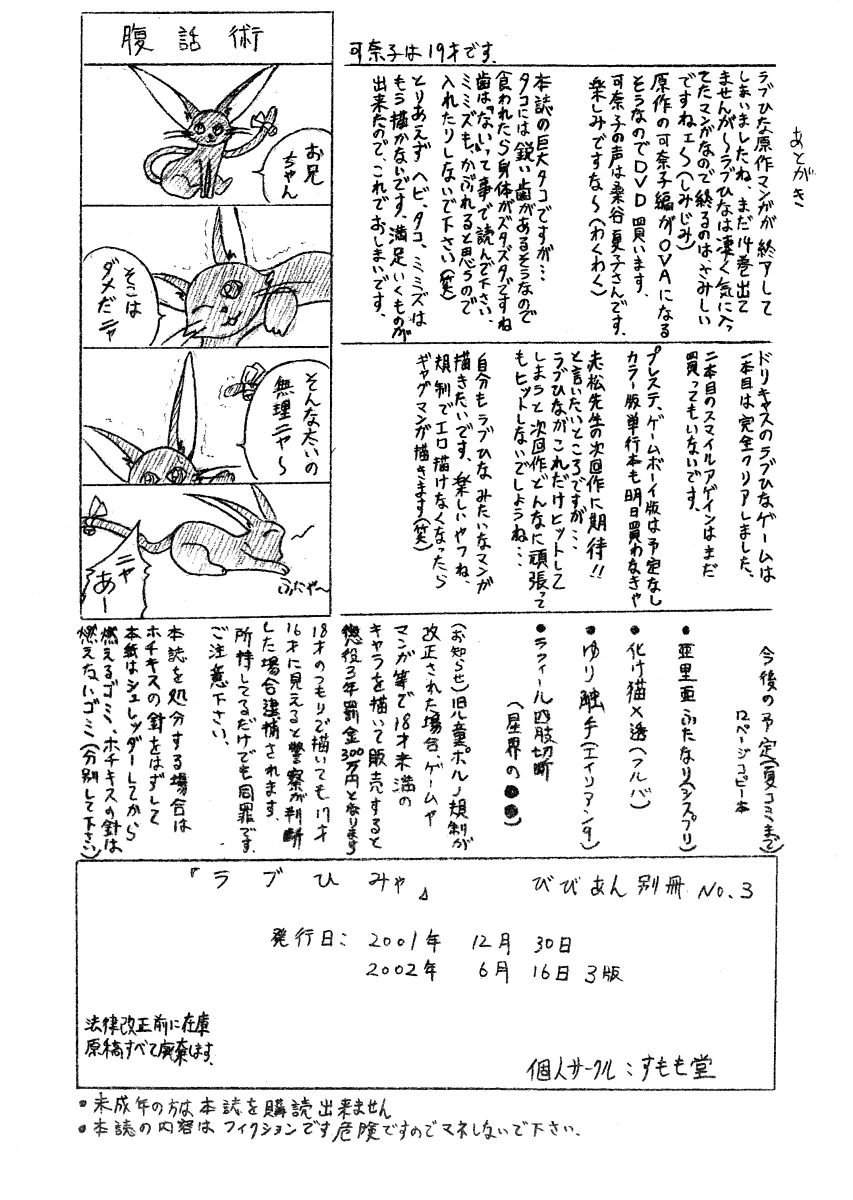 あとがき
ラブひな原作マンガが終了して
しまいましたね、まだ14巻出て
ませんが〜ラブひなは凄く気に入っ
てたマンガなので終るのは、さみしい
ですねェ〜(しみじみ)
原作の可奈子編がOVAになる
そうなのでDVD買います、
可奈子の声は桑谷夏子さんです、
楽しみですな〜(わくわく)
本誌の巨大タコですが…
タコには鋭い歯があるそうなので
食われたら身体がズタズタですね
歯は「ない」って事で読んで下さい、
ミミズも、かぶれると思うので
入れたりしないで下さい(笑)
とりあえずヘビ、タコ、ミミズは
もう描かないです、満足いくものが
出来たので、これでおしまいです、
可奈子は19才です、
腹話術
お兄
ちゃん
そこは
ダメだニャ
そんな太いの
無理ニャ〜
ニャ
あー
ふにゃ〜
ドリキャスのラブひなゲームは
一本目は完全クリアしました、
二本目のスマイルアゲインはまだ
買ってもいないです、
プレステ、ゲームボーイ版は予定なし
カラー版単行本も明日買わなきゃ
赤松先生の次回作に期待!!
と言いたいところですが…
ラブひながこれだけヒットして
しまうと次回作どんなに頑張って
もヒットしないでしょうね…
自分もラブひなみたいなマンガ
描きたいです、楽しいやつね、
規制でエロ描けなくなったら
ギャグマンガ描きます(笑)
今後の予定(夏コミまで)
12ページコピー本
●亜里亜ふたなり(シスプリ)
●化け猫×透(フルバ)
●ゆり触手(エイリアン9)
●ラフィール四肢切断
(星界の●●)
(お知らせ)児童ポルノ規制が
改正された場合、ゲームや
マンガ等で18才未満の
キャラを描いて販売すると
懲役3年罰金300万円となります
18才のつもりで描いても17才
16才に見えると警察が判断
した場合逮捕されます、
所持してるだけでも同罪です、
ご注意下さい、
本誌を処分する場合は
ホチキスの針をはずして
本紙はシュレッダーしてから
燃えるゴミ、ホチキスの針は
燃えないゴミ(分別して下さい)
『ラブひみゃ』 びびあん別冊 No.3
発行日: 2001年 12月 30日
2002年 6月 16日 3版
法律改正前に在庫
原稿すべて廃棄します、
個人サークル:すもも堂
●未成年の方は本誌を購読出来ません
●本誌の内容はフィクションです危険ですのでマネしないで下さい、